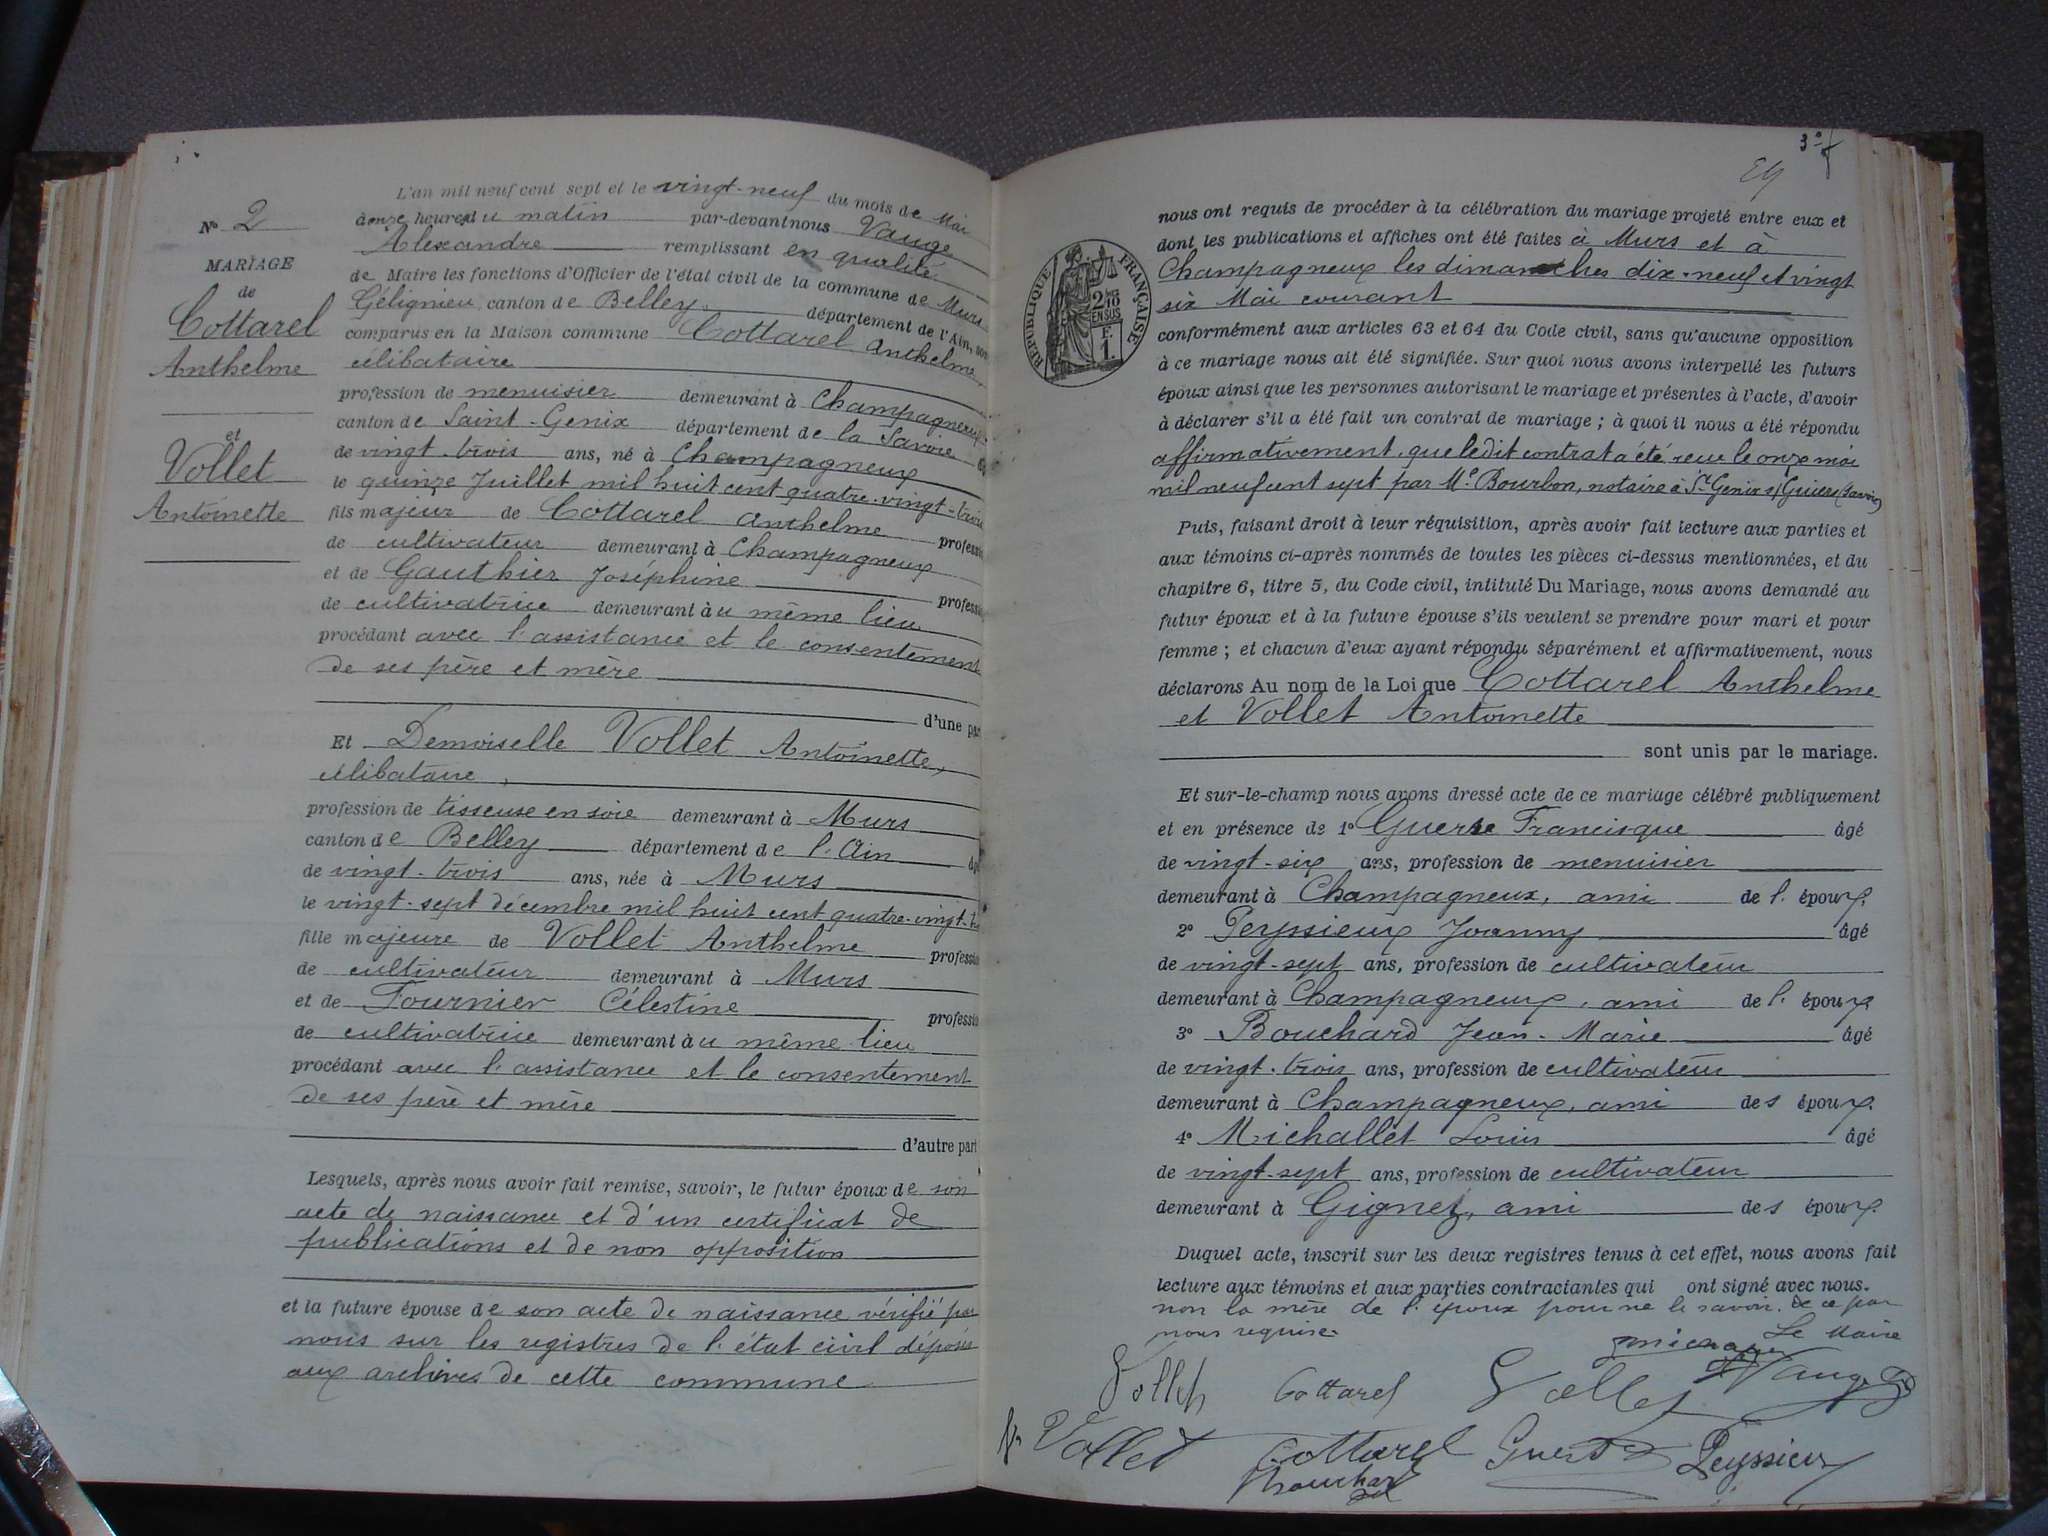 N° 2
MARIAGE
de
Cottarel
Anthelme
et
Vollet
Antoinette
L'an mil neuf cent sept et le vingt-neuf du mois de Mai
à onze heures du matin par-devant nous Vauge
Alexandre remplissant en qualité
de Maire les fonctions d'Officier de l'état civil de la commune de Murs
Gélignieu, canton de Belley, département de l'Ain, sont
comparus en la Maison commune Cottarel Anthelme,
célibataire
profession de menuisier demeurant à Champagneux
canton de Saint-Genix département de la Savoie
de vingt-trois ans, né à Champagneux
le quinze Juillet mil huit cent quatre-vingt-trois
fils majeur de Cottarel Anthelme profession
de cultivateur demeurant à Champagneux
et de Gauthier Joséphine profession
de cultivatrice demeurant au même lieu
procédant avec l'assistance et le consentement
de ses père et mère
d'une part
Et Demoiselle Vollet Antoinette,
célibataire,
profession de tisseuse en soie demeurant à Murs
canton de Belley département de l'Ain âgée
de vingt-trois ans, née à Murs
le vingt-sept décembre mil huit cent quatre-vingt-
fille majeure de Vollet Anthelme profession
de cultivateur demeurant à Murs
et de Fournier Célestine profession
de cultivatrice demeurant au même lieu
procédant avec l'assistance et le consentement
de ses père et mère
d'autre part
Lesquels, après nous avoir fait remise, savoir, le futur époux de son
acte de naissance et d'un certificat de
publications et de non opposition
et la future épouse de son acte de naissance vérifié par
nous sur les registres de l'état civil déposés
aux archives de cette commune
3e
RÉPUBLIQUE FRANÇAISE
2 10
EN SUS
F.
1.
nous ont requis de procéder à la célébration du mariage projeté entre eux et
dont les publications et affiches ont été faites à Murs et à
Champagneux les dimanches dix-neuf et vingt
six Mai courant
conformément aux articles 63 et 64 du Code civil, sans qu'aucune opposition
à ce mariage nous ait été signifiée. Sur quoi nous avons interpellé les futurs
époux ainsi que les personnes autorisant le mariage et présentes à l'acte, d'avoir
à déclarer s'il a été fait un contrat de mariage ; à quoi il nous a été répondu
affirmativement, que ledit contrat a été reçu le onze mai
mil neuf cent sept par Me Bourbon, notaire à St Genix s/Guiers (Savoie)
Puis, faisant droit à leur réquisition, après avoir fait lecture aux parties et
aux témoins ci-après nommés de toutes les pièces ci-dessus mentionnées, et du
chapitre 6, titre 5, du Code civil, intitulé Du Mariage, nous avons demandé au
futur époux et à la future épouse s'ils veulent se prendre pour mari et pour
femme ; et chacun d'eux ayant répondu séparément et affirmativement, nous
déclarons Au nom de la Loi que Cottarel Anthelme
et Vollet Antoinette
sont unis par le mariage.
Et sur-le-champ nous avons dressé acte de ce mariage célébré publiquement
et en présence de 1° Guerre Francisque âgé
de vingt-six ans, profession de menuisier
demeurant à Champagneux, ami de l'époux.
2° Peyssieux Joanny âgé
de vingt-sept ans, profession de cultivateur
demeurant à Champagneux, ami de l'époux
3° Bouchard Jean-Marie âgé
de vingt-trois ans, profession de cultivateur
demeurant à Champagneux, ami des époux.
4° Michallet Louis âgé
de vingt-sept ans, profession de cultivateur
demeurant à Gignez, ami des époux.
Duquel acte, inscrit sur les deux registres tenus à cet effet, nous avons fait
lecture aux témoins et aux parties contractantes qui ont signé avec nous.
non la mère de l'époux pour ne le savoir. de ce par
nous requise.
Le Maire
Vollet Cottarel Vollet Vauge
Vollet Cottarel Guerre Peyssieux
Bouchard